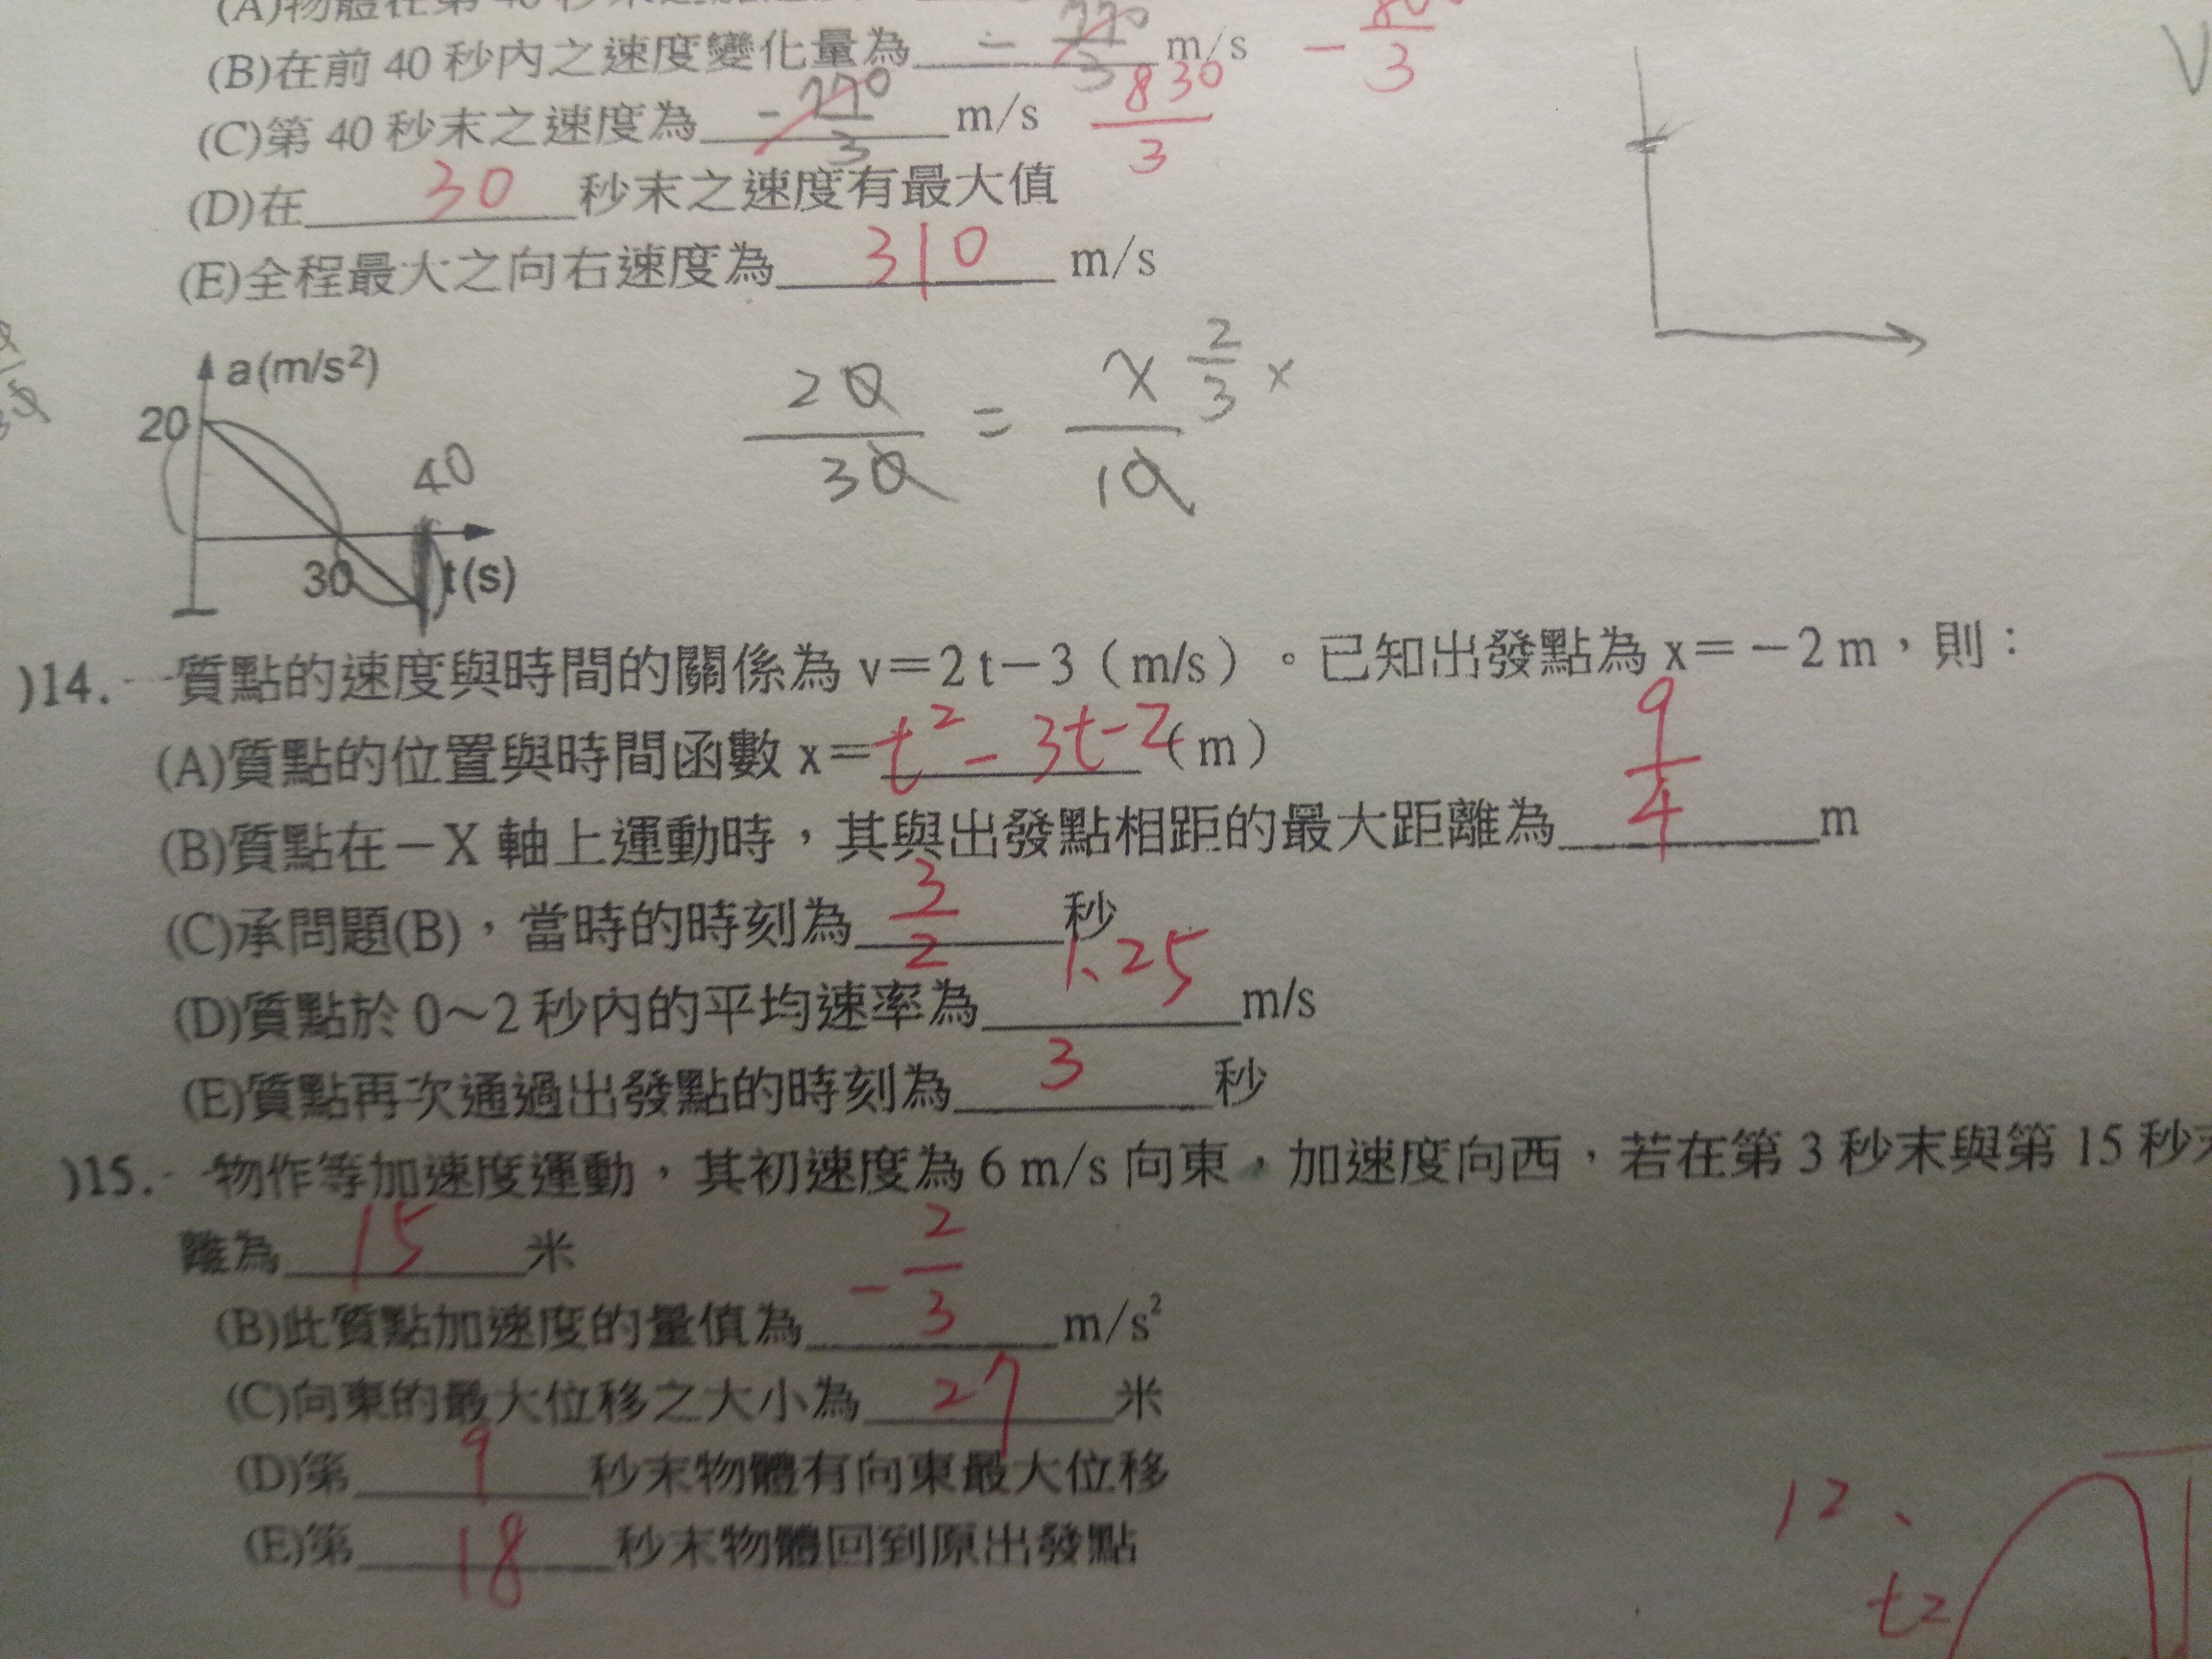 (B)在前 40 秒內之速度變化量為 - 770/3 m/s - 800/3
(C)第 40 秒末之速度為 - 770/3 m/s 830/3
(D)在 30 秒末之速度有最大值
(E)全程最大之向右速度為 310 m/s
a(m/s²)
20
40
30
t(s)
20/30 = x/10 2/3 x
)14. 一質點的速度與時間的關係為 v=2t-3(m/s)。已知出發點為 x=-2 m,則:
(A)質點的位置與時間函數 x= t²-3t-2 (m)
(B)質點在-X 軸上運動時,其與出發點相距的最大距離為 9/4 m
(C)承問題(B),當時的時刻為 3/2 秒
(D)質點於 0~2 秒內的平均速率為 1.25 m/s
(E)質點再次通過出發點的時刻為 3 秒
)15. 一物作等加速度運動,其初速度為 6 m/s 向東,加速度向西,若在第 3 秒末與第 15 秒
離為 15 米
(B)此質點加速度的量值為 - 2/3 m/s²
(C)向東的最大位移之大小為 27 米
(D)第 9 秒末物體有向東最大位移
(E)第 18 秒末物體回到原出發點
12、